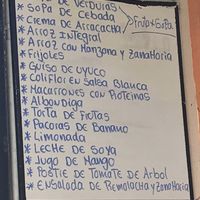 DE VERDURAS
* SOPA DE CEBADA
* CREMA DE ARRACACHA
Fruta x Sopa
* ARROZ INTEGRAL
* ARROZ CON MANZANA Y ZANAHORIA
* FRIJOLES
* GUISO DE UYUCO
* COLIFLOR EN SALSA BLANCA
* MACARRONES CON PROTEINAS
* ALBONDIGA
* TORTA DE FRUTAS
* PACORAS DE BANANO
* LIMONADA
* LECHE DE SOYA
* JUGO DE MANGO
* POSTRE DE TOMATE DE ARBOL
* ENSALADA DE REMOLACHA Y ZANAHORIA